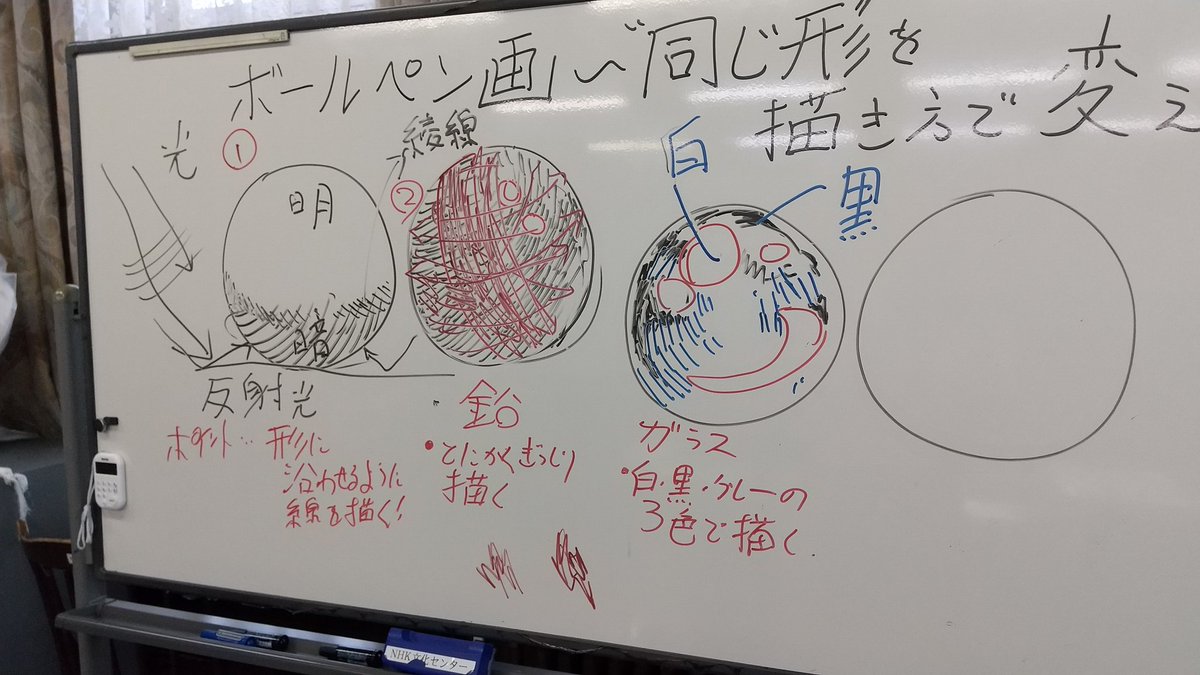 ボールペン画〜"同じ形を
描き方で"変え
光
①
明
暗
反射光
ポイント… 形に
沿わせるように
線を描く!
稜線
②
鉛
・とにかくぎっしり
描く
白
黒
ガラス
・白・黒・グレーの
3色で描く
NHK文化センター